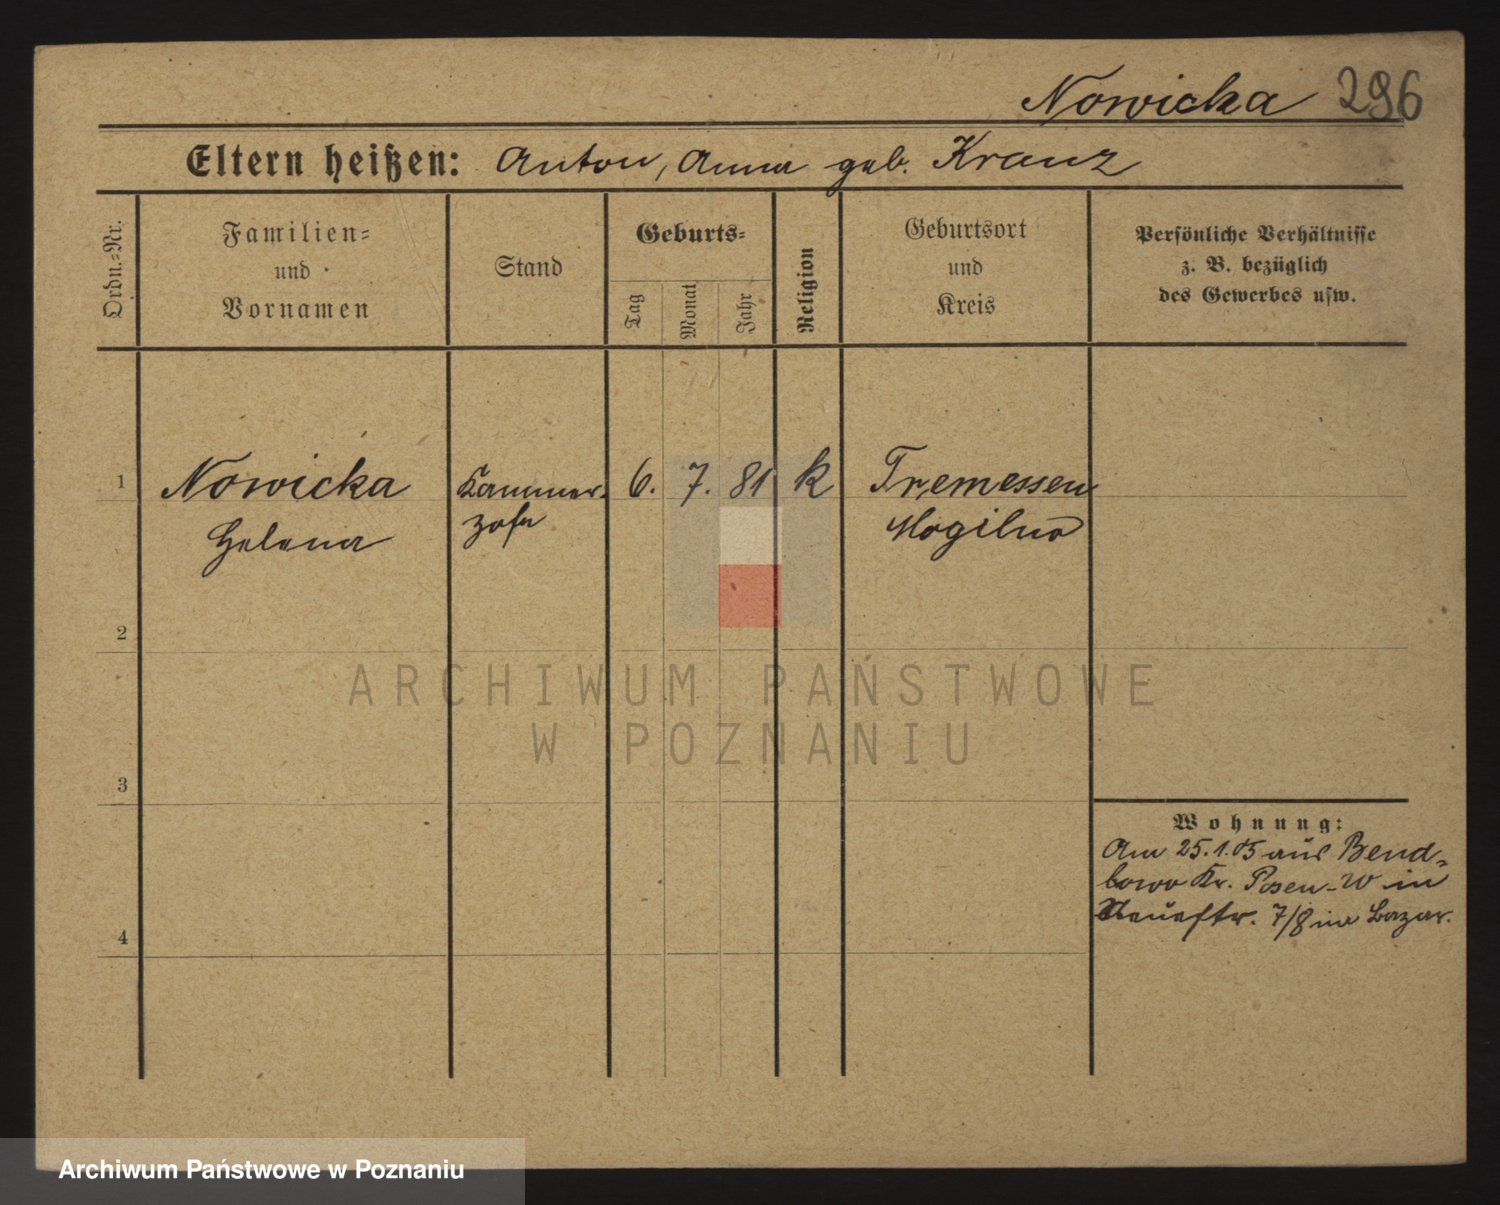 Nowicka 296
Eltern heißen: Anton, Anna geb. Kranz
Ordn.-Nr.
Familien-
und
Vornamen
Stand
Geburts-
Tag
Monat
Jahr
Religion
Geburtsort
und
Kreis
Persönliche Verhältnisse
z. B. bezüglich
des Gewerbes usw.
1 Nowicka Kammer- 6. 7. 81 k Tremessen
Helena zofe Mogilno
2
ARCHIWUM PAŃSTWOWE
W POZNANIU
3
Wohnung:
Am 25.1.05 aus Bend-
lewo Kr. Posen-W in
Neuestr. 7/8 im Bazar.
4
Archiwum Państwowe w Poznaniu